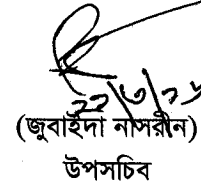 ২২|৬|২৬
(জুবাইদা নাসরীন)
উপসচিব